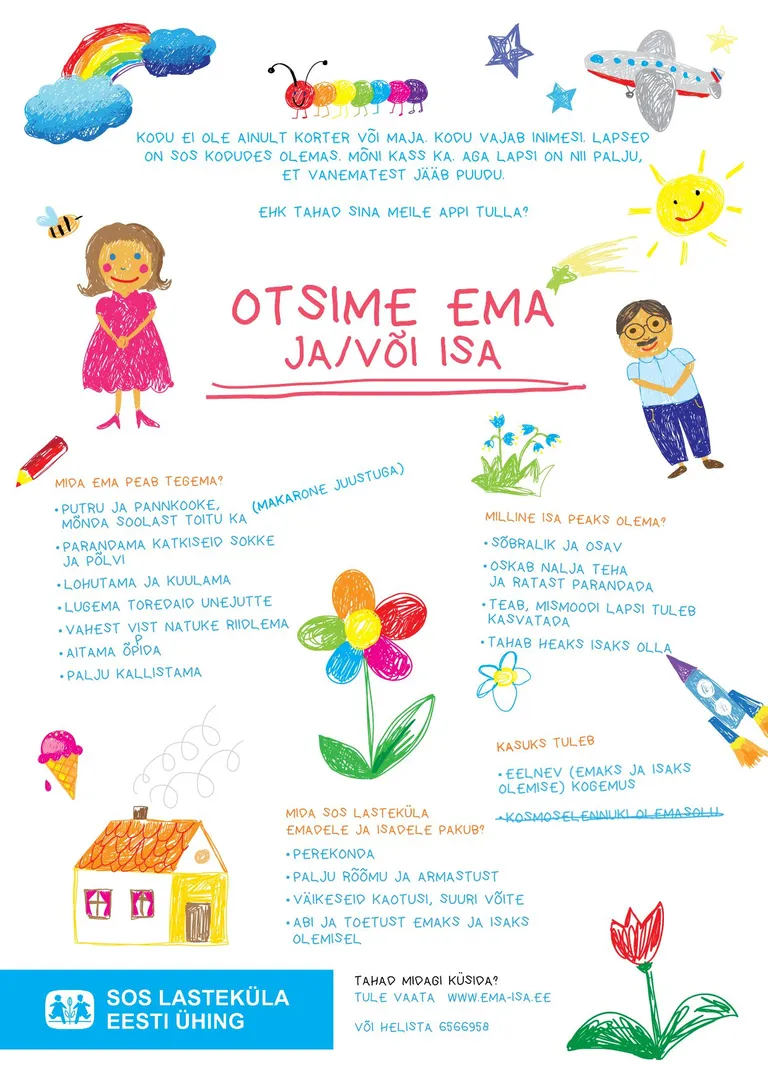 KODU EI OLE AINULT KORTER VÕI MAJA. KODU VAJAB INIMESI. LAPSED
ON SOS KODUDES OLEMAS. MÕNI KASS KA. AGA LAPSI ON NII PALJU,
ET VANEMATEST JÄÄB PUUDU.
EHK TAHAD SINA MEILE APPI TULLA?
OTSIME EMA
JA/VÕI ISA
MIDA EMA PEAB TEGEMA?
• PUTRU JA PANNKOOKE, (MAKARONE JUUSTUGA)
MÕNDA SOOLAST TOITU KA
• PARANDAMA KATKISEID SOKKE
JA PÕLVI
• LOHUTAMA JA KUULAMA
• LUGEMA TOREDAID UNEJUTTE
• VAHEST VIST NATUKE RIIDLEMA
P
• AITAMA ÕPIDA
• PALJU KALLISTAMA
MILLINE ISA PEAKS OLEMA?
• SÕBRALIK JA OSAV
• OSKAB NALJA TEHA
JA RATAST PARANDADA
• TEAB, MISMOODI LAPSI TULEB
KASVATADA
• TAHAB HEAKS ISAKS OLLA
KASUKS TULEB
• EELNEV (EMAKS JA ISAKS
OLEMISE) KOGEMUS
• KOSMOSELENNUKI OLEMASOLU
MIDA SOS LASTEKÜLA
EMADELE JA ISADELE PAKUB?
• PEREKONDA
• PALJU RÕÕMU JA ARMASTUST
• VÄIKESEID KAOTUSI, SUURI VÕITE
• ABI JA TOETUST EMAKS JA ISAKS
OLEMISEL
SOS LASTEKÜLA
EESTI ÜHING
TAHAD MIDAGI KÜSIDA?
TULE VAATA WWW.EMA-ISA.EE
VÕI HELISTA 6566958